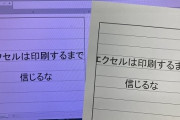 エクセルは印刷するまで
信じるな
エクセルは印刷するま
信じるな